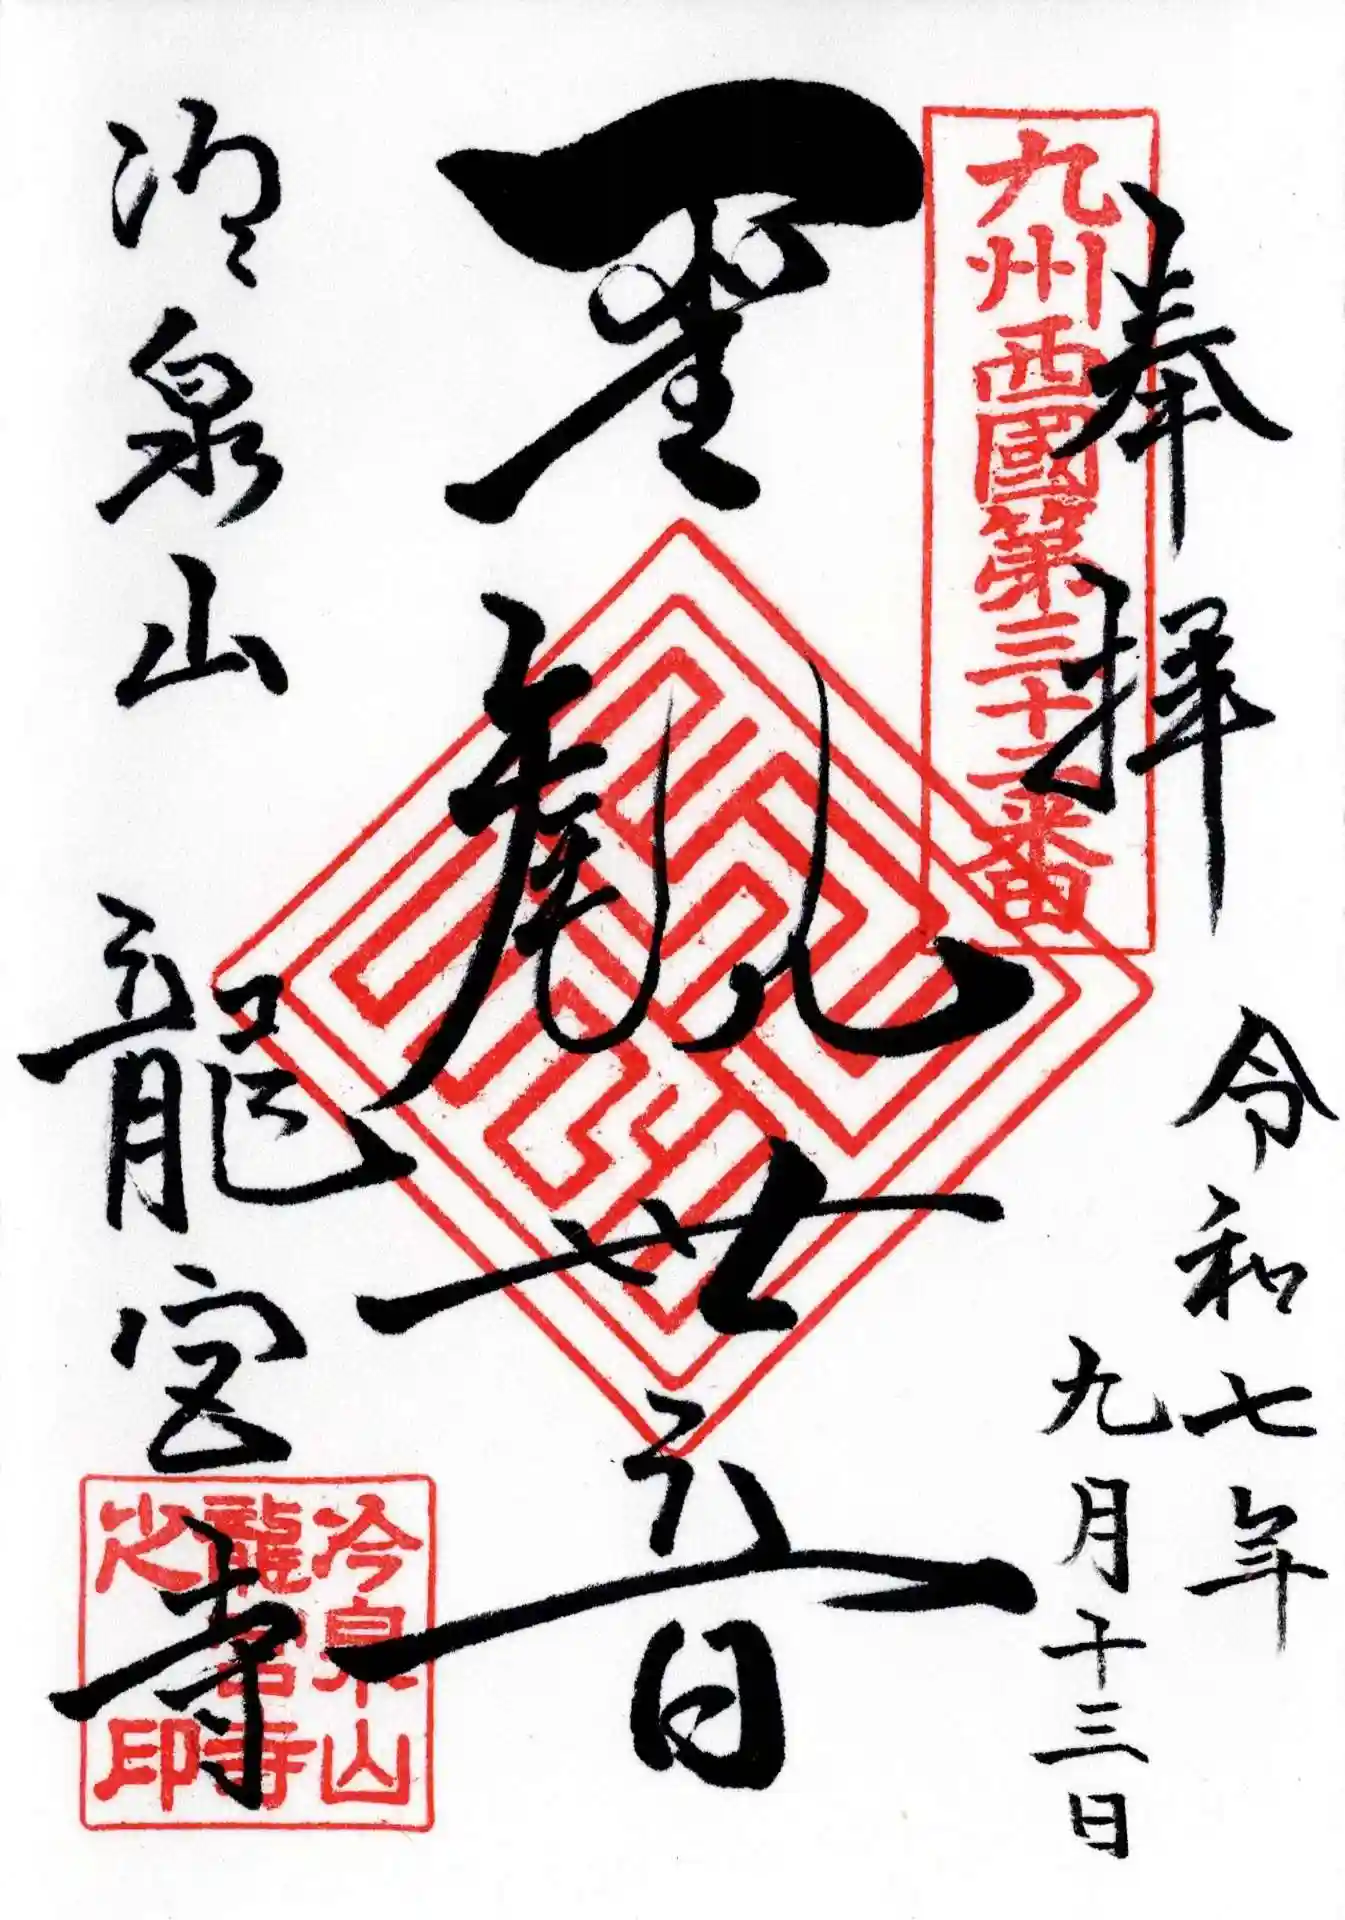 奉拝
令和七年
九月十三日
九州西國第三十二番
聖観世音
冷泉山
龍宮寺
冷泉山
龍宮寺
之印